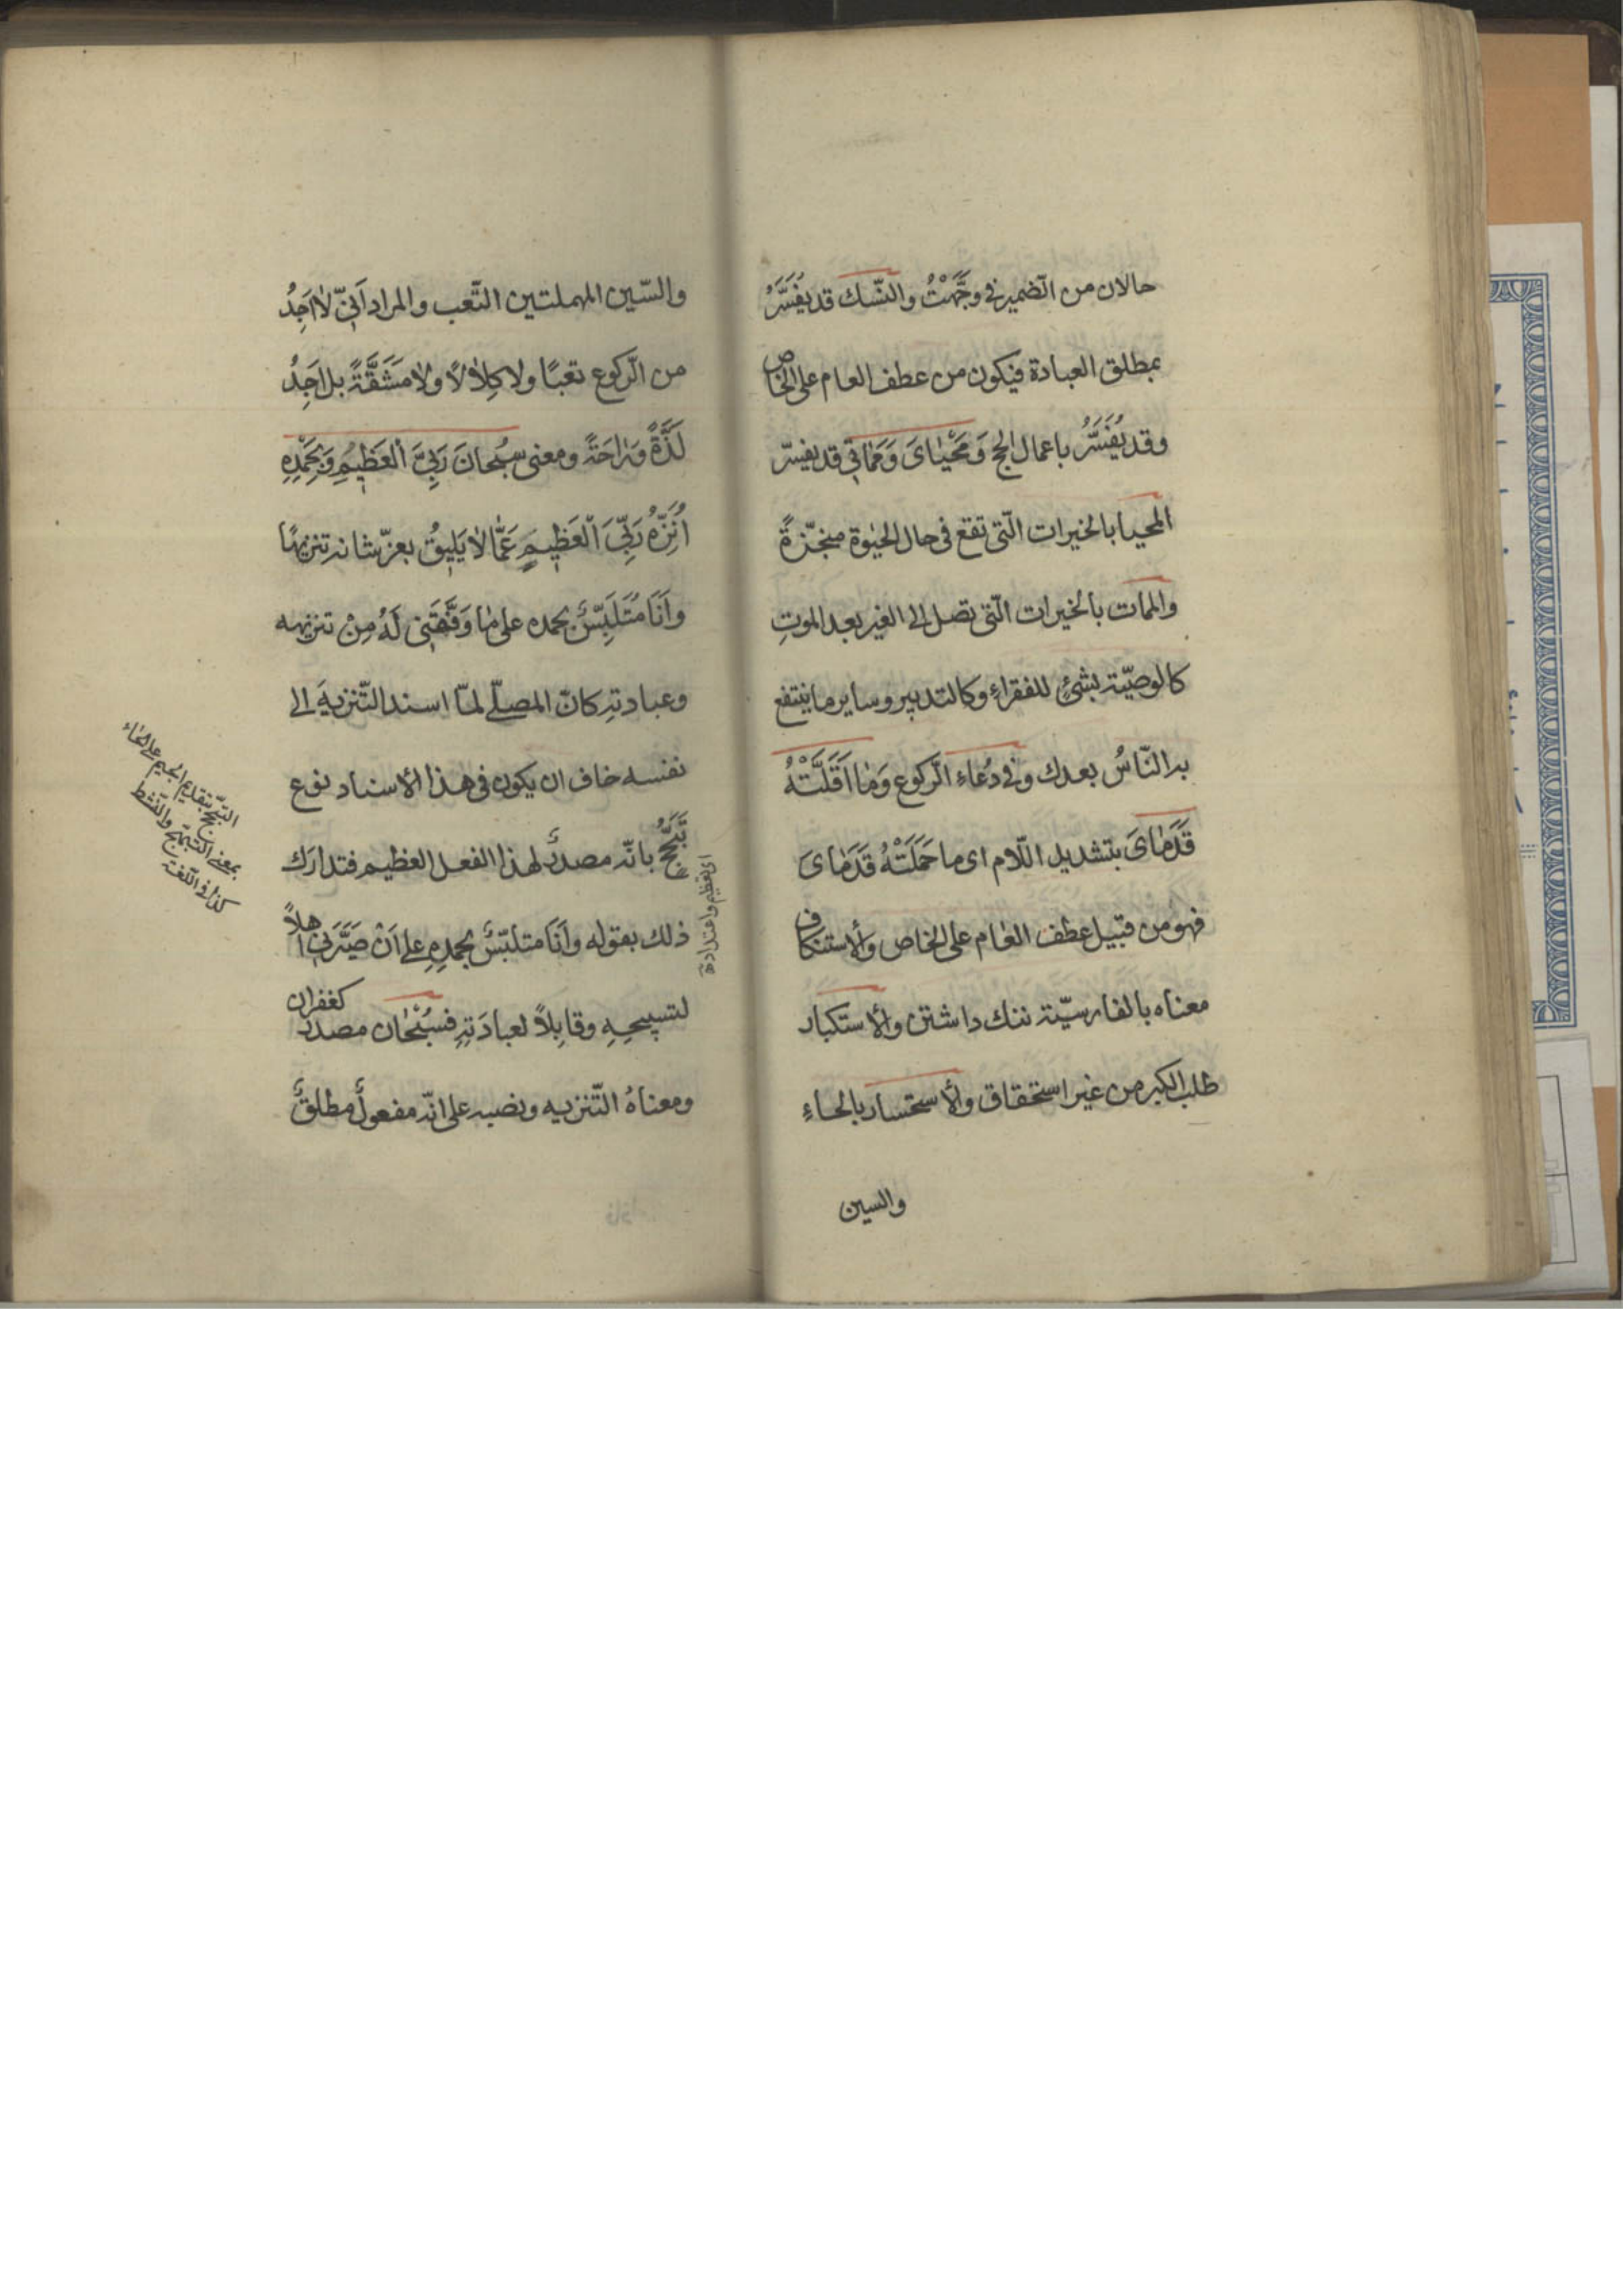 حالان من الضمير فى وَجَّهْتُ والنّسك قد يُفَسَّرُ
بمطلق العبادة فيكون من عطف العام على الخاص
وقد يُفَسَّرُ باعمال الحج وَمَحْيٰاىَ وَمَمٰاتى قد يفسّر
المحيا بالخيرات الّتى تقع فى حال الحيٰوة منجّزةً
والممات بالخيرات الّتى تصل الى الغير بعد الموتِ
كالوصيّة بشئٍ للفقراءِ وكالتدبير وساير ما ينتفع
به النّاسُ بعدك وفى دُعاءِ الرّكوع وَمٰا اَقَلَّتْهُ
قَدَمٰاىَ بتشديد اللّام اى ما حَمَلَتْهُ قَدَمٰاىَ
فهو من قبيل عطف العٰام على الخاص والأستنكاف
معناه بالفارسيّة ننك داشتن والأستكبار
طلب الكبر من غير استحقاق والأستحسار بالحاءِ
والسين
والسّين المهملتين التَّعب والمراد اَنّى لٰا اَجِدُ
من الرّكوع تعبًا ولا كِلٰالًا ولٰا مَشَقَّةً بل اَجِدُ
لَذَّةً ورٰاحَةً ومعنى سُبْحانَ رَبِّىَ الْعَظِيمِ وَبِحَمْدِهِ
اُنَزِّهُ رَبِّىَ الْعَظِيمِ عَمّٰا لٰا يَلِيقُ بعزّ شانه تنزيهًا
واَنَا مُتَلَبِّسٌ بحمده على مٰا وَفَّقَنِى لَهُ مِنْ تنزيهه
وعبادته كانّ المصلّى لمّا اسند التّنزيهَ الى
نفسه خاف ان يكون فى هذا الأسناد نوع
تَبَجُّحٍ بانّه مصدرٌ لهذا الفعل العظيم فتدارَك
ذلك بقوله واَنَا متلبّسٌ بحمدِهِ على اَنْ صَيَّرَنِى اهلاً
لتسبيحِهِ وقابِلاً لعبادَتِهِ فسُبْحٰان مصدر كغفران
ومعناهُ التّنزيه ونصبه على انّه مفعولٌ مطلقٌ
التبجّح بتقديم الجيم على الحٰاء
بمعنى التبهّج والنّشط
كذا فى اللّغة